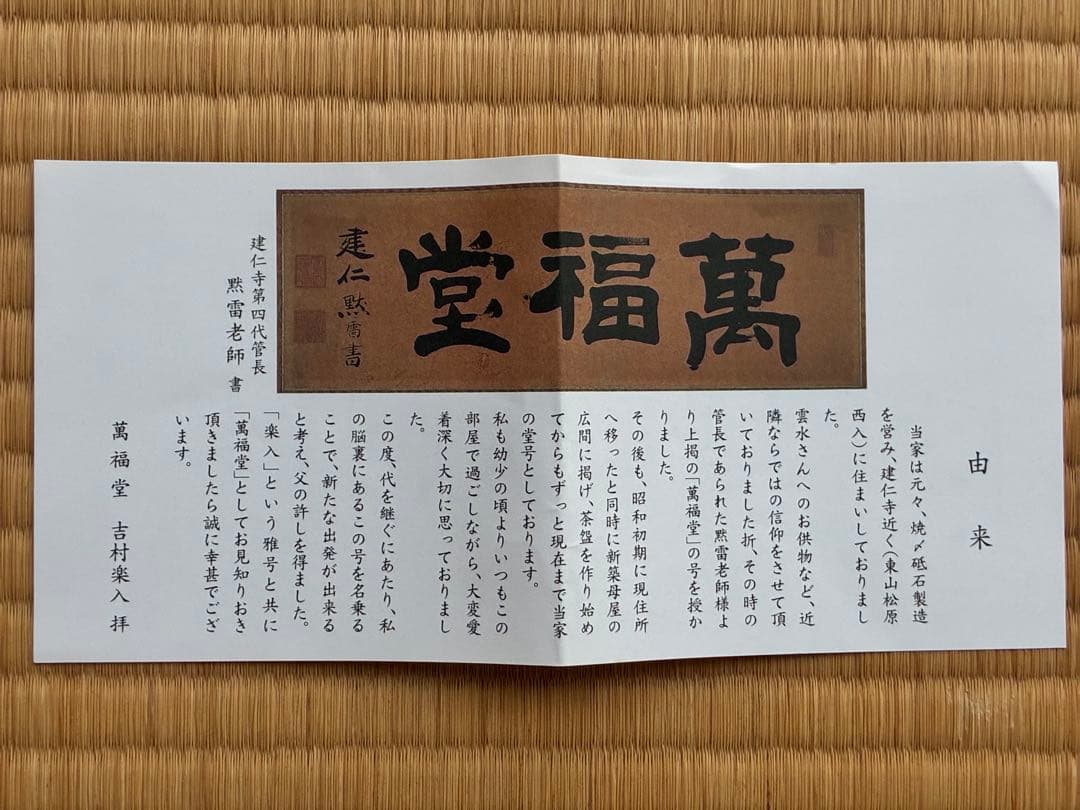 由来
萬福堂
建仁黙雷書
建仁寺第四代管長
黙雷老師 書
当家は元々、焼〆砥石製造
を営み、建仁寺近く(東山松原
西入)に住まいしておりまし
た。
雲水さんへのお供物など、近
隣ならではの信仰をさせて頂
いておりました折、その時の
管長であられた黙雷老師様よ
り上掲の「萬福堂」の号を授か
りました。
その後も、昭和初期に現住所
へ移ったと同時に新築母屋の
広間に掲げ、茶盌を作り始め
てからもずっと現在まで当家
の堂号としております。
私も幼少の頃よりいつもこの
部屋で過ごしながら、大変愛
着深く大切に思っておりまし
た。
この度、代を継ぐにあたり、私
の脳裏にあるこの号を名乗る
ことで、新たな出発が出来る
と考え、父の許しを得ました。
「楽入」という雅号と共に
「萬福堂」としてお見知りおき
頂きましたら誠に幸甚でござ
います。
萬福堂 吉村楽入 拝